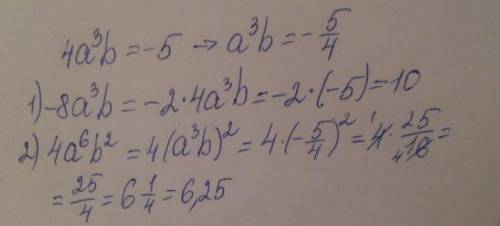 4a³b = -5 → a³b = -5/4
1) -8a³b = -2·4a³b = -2·(-5) = 10
2) 4a⁶b² = 4(a³b)² = 4·(-5/4)² = ¹4·25/₄16 =
= 25/4 = 6 1/4 = 6,25